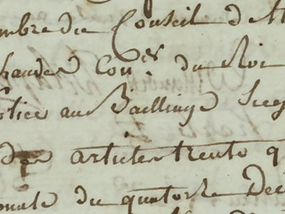 mbre du Conseil d'Et
chandes Con.er du Roi
stice au Bailliage
des articles trente q
du quatorze Dec